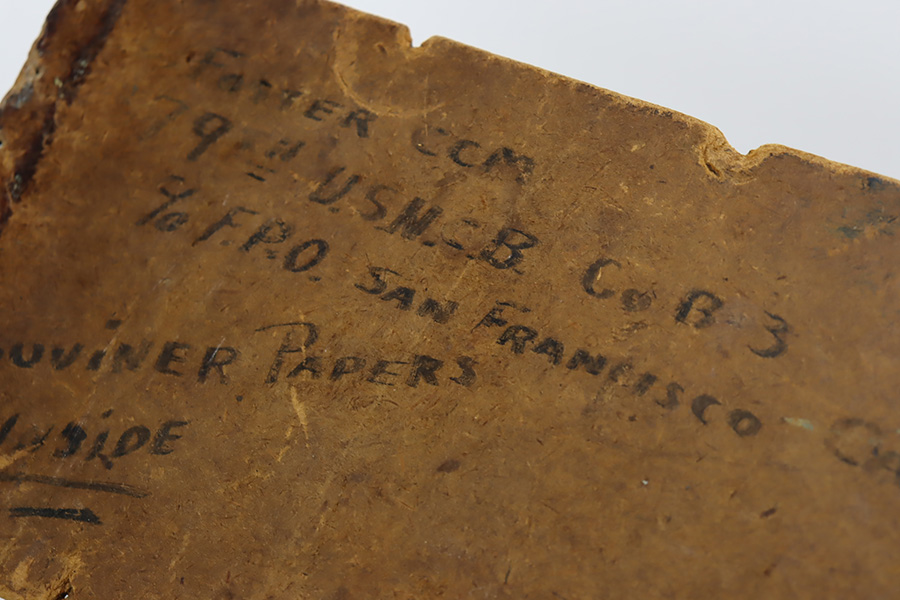 CCM
79TH U.S.N.C.B. Co B-3
% F.P.O. SAN FRANCISCO
OUVINER PAPERS
INSIDE